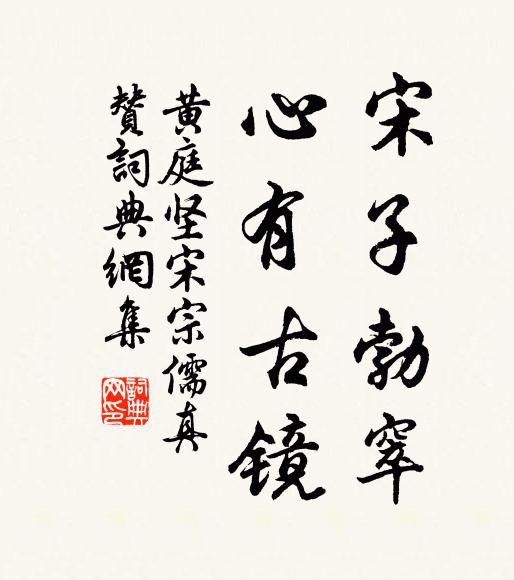 宋子勃窣
心有古镜
黄庭坚宋宗儒真
赞詞典網集
詞典网印